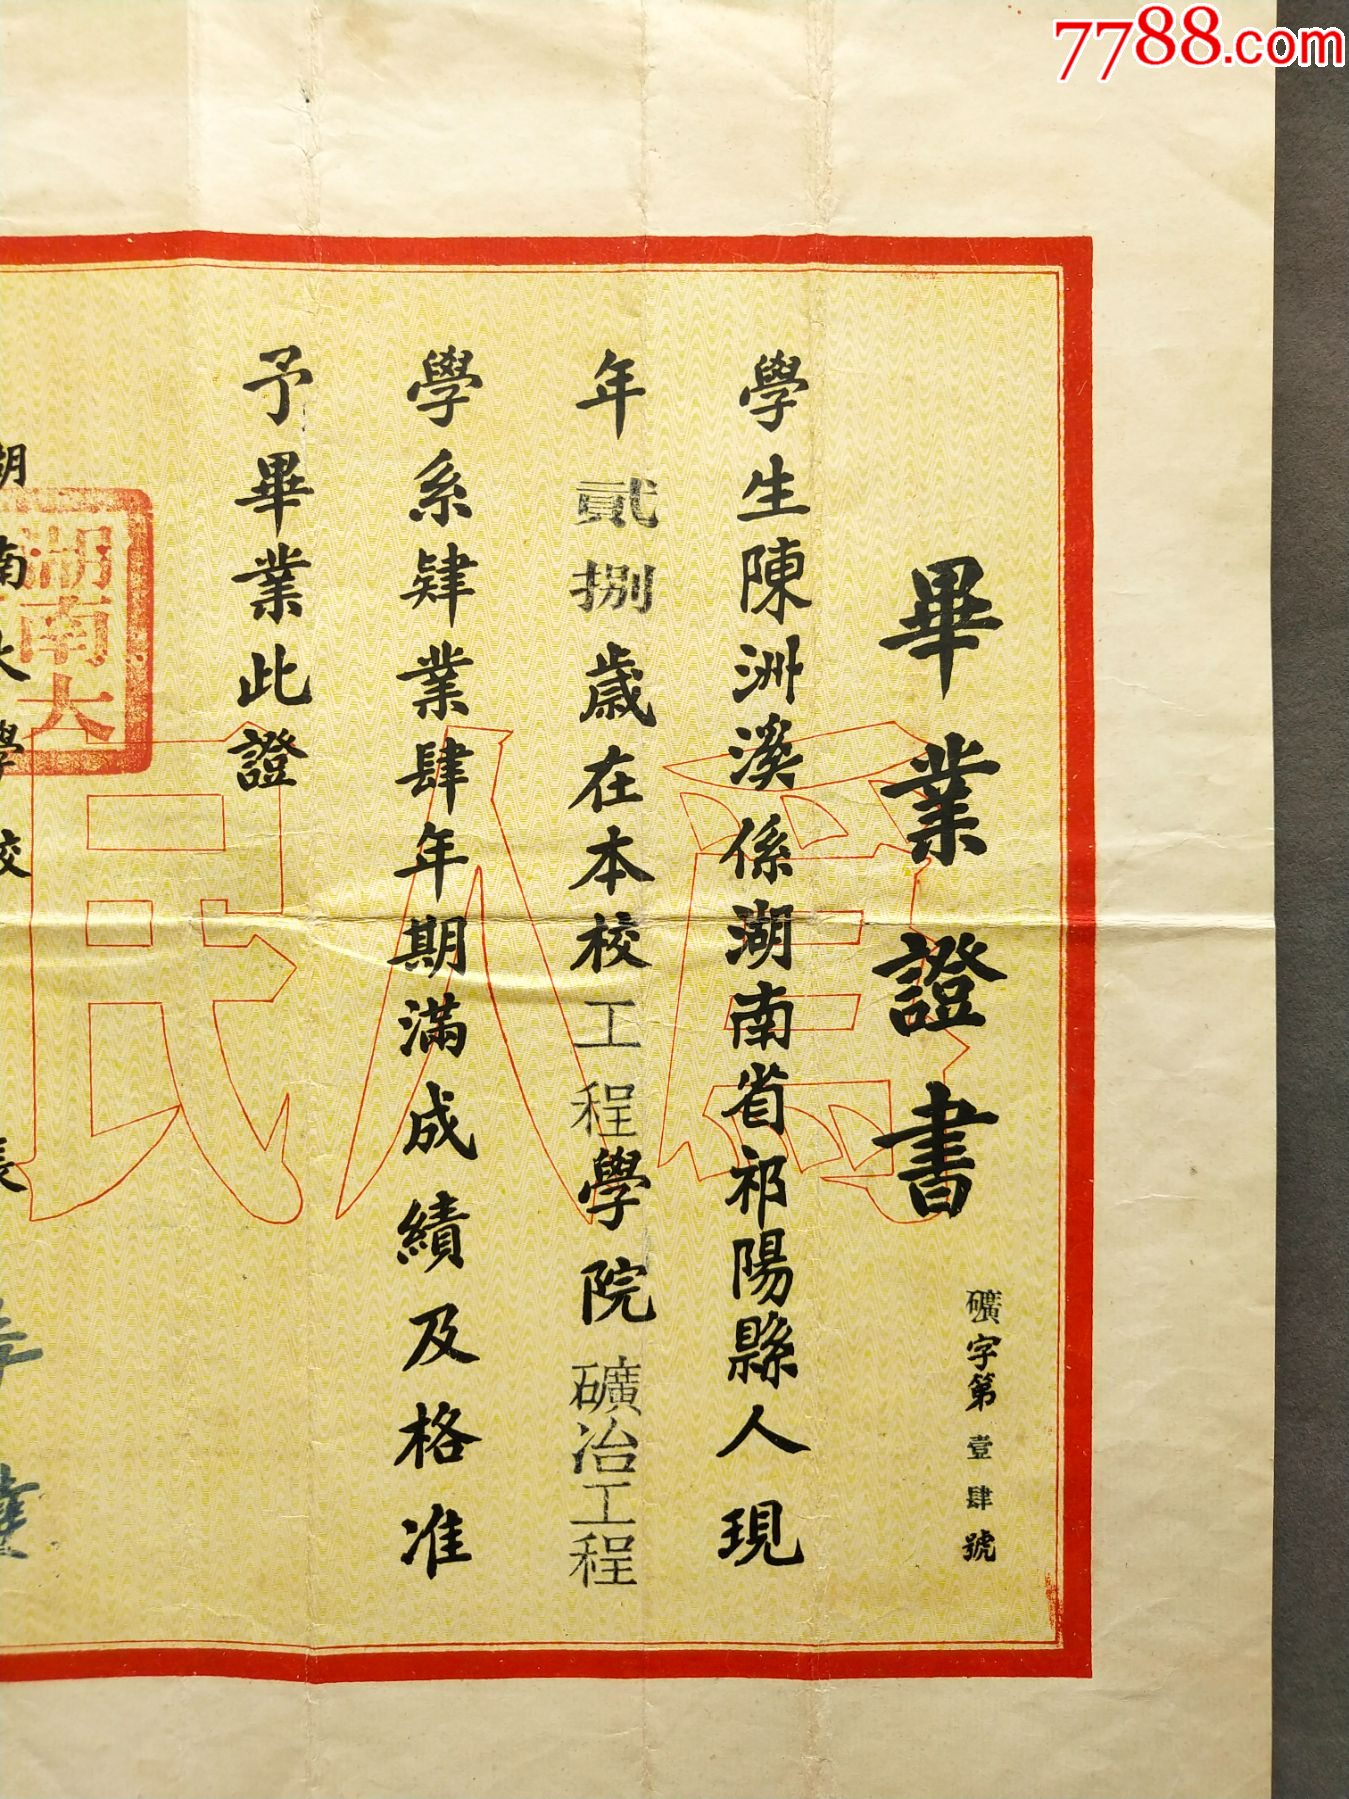 7788.com
畢業證書
礦字第壹肆號
學生陳洲溪係湖南省祁陽縣人現
年貳捌歲在本校工程學院礦冶工程
學系肄業肆年期滿成績及格准
予畢業此證
湖南大學校長
湖南大
爲人民